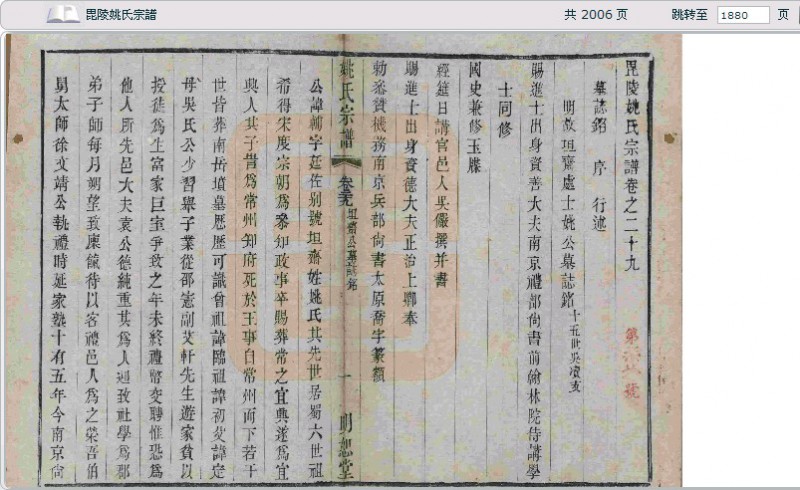 毘陵姚氏宗譜
共 2006 页
跳转至 1880 页
毘陵姚氏宗譜卷之二十九
墓誌銘 序 行述
明故坦齋處士姚公墓誌銘
賜進士出身資善大夫南京禮部尚書前翰林院侍講學
士同修
國史兼修玉牒
經筵日講官邑人吳儼撰并書
賜進士出身資德大夫正治上卿奉
勅叅贊機務南京兵部尚書太原喬宇篆額
姚氏宗譜 坦齋公墓誌銘 一 明恕堂
公諱 字廷佐别號坦齋姓姚氏其先世居蜀六世祖
希得宋度宗朝爲叅知政事卒賜葬常之宜興遂爲宜
興人其子 爲常州知府死於王事自常州而下若干
世皆葬南岳墳墓歷歷可識曾祖諱臨祖諱初父諱定
母吳氏公少習舉子業從邵憲副文軒先生遊家貧以
授徒爲生富家巨室爭致之年未終禮幣交聘惟恐爲
他人所先邑大夫袁公德純重其爲人 致社學爲鄉
弟子師每月朔望致廩餼待以客禮邑人爲之榮吾伯
舅太師徐文靖公執禮時延家塾十有五年今南京尚